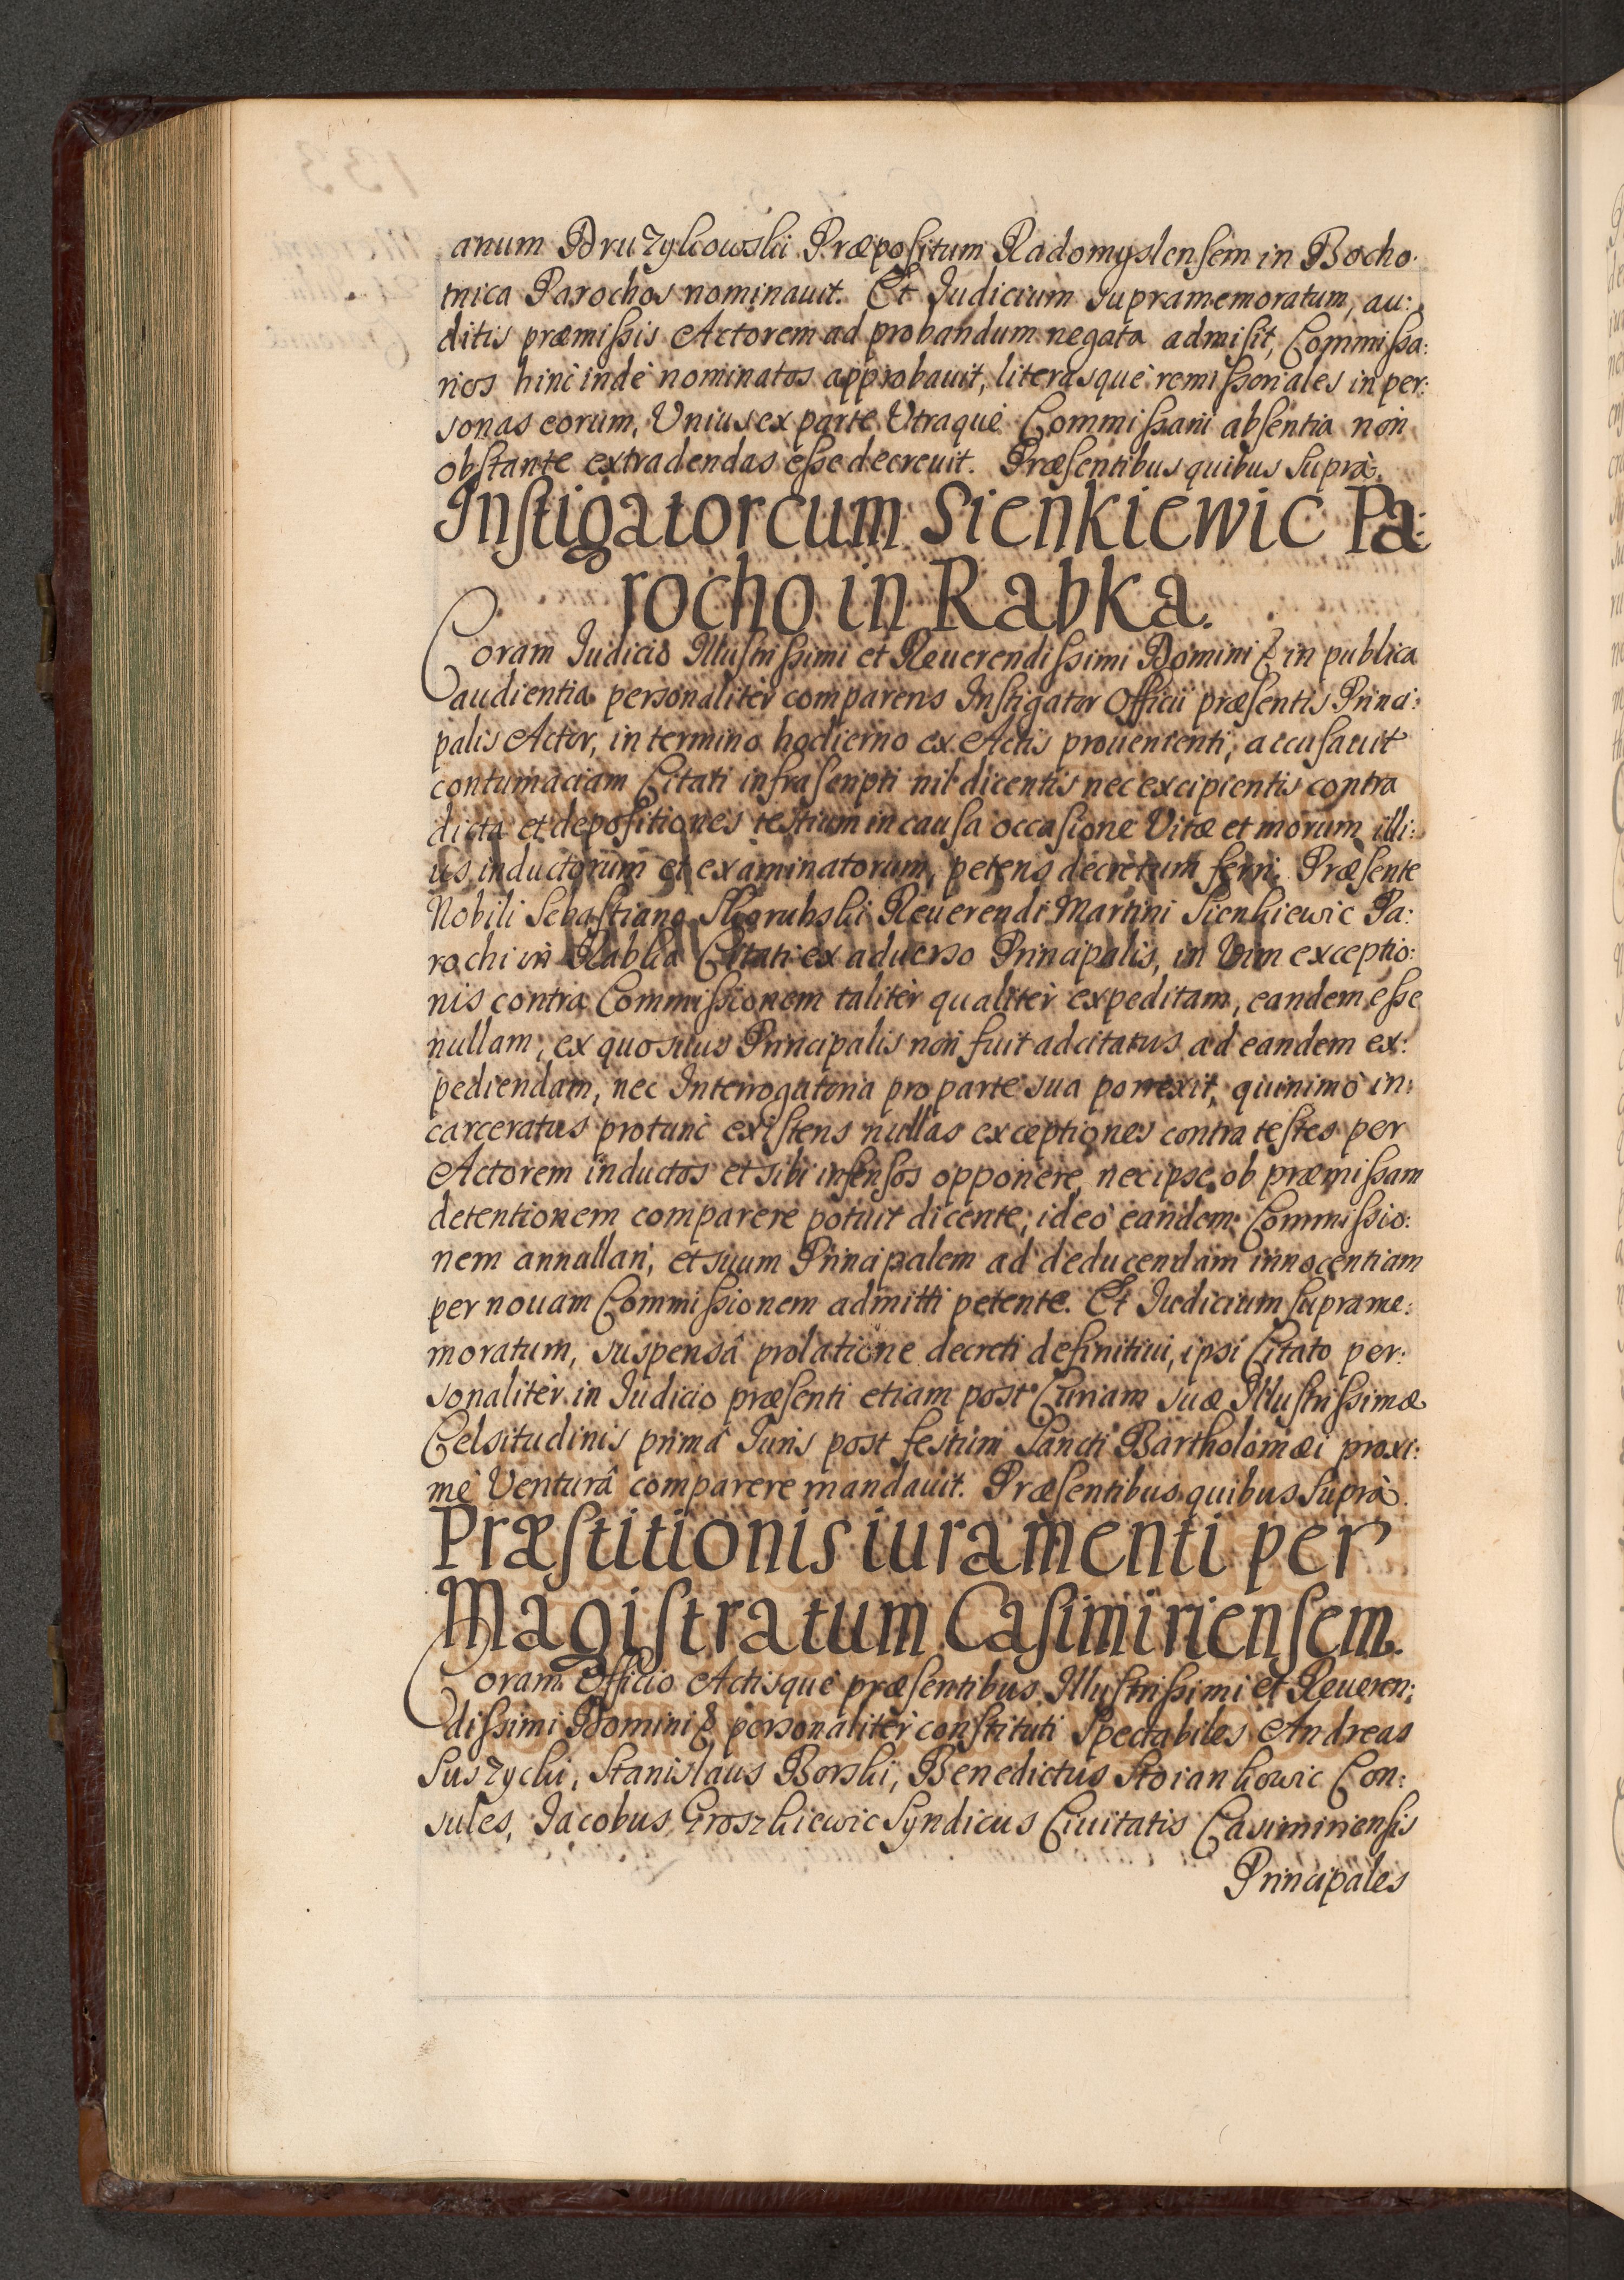 anum Druzylkowski Præpositum Radomyslensem in Bocho:
tnica Parochos nominauit. Et Judicium supramemoratum, au:
ditis præmissis Actorem ad probandum negata admisit, Commissa:
rios hinc inde nominatos approbauit, literasquè remissoriales in per:
sonas eorum, Unius ex parte Utraquè Commissarii absentia non
obstante extradendas esse decreuit. Præsentibus quibus suprà.
Instigator cum Sienkiewic Pa:
rocho in Rabka.
Coram Iudicio Illustrissimi et Reuerendissimi Domini & in publica
audientia personalitèr comparens Instigator Officii præsentis Princi:
palis Actor, in termino hodierno ex Actis prouenienti, accusauit
contumaciam Citati infrascripti nil dicentis nec excipientis contra
dicta et depositiones testium in causa occasione Vitæ et morum illi:
us inductorum et examinatorum, petens decretum ferri. Præsente
Nobili Sebastiano Skorubski Reuerendi Martini Sienkiewic Pa:
rochi in Rabka Citati ex aduerso Principalis, in Vim exceptio:
nis contra Commissionem talitèr qualitèr expeditam, eandem esse
nullam, ex quo suus Principalis non fuit adcitatus ad eandem ex:
pediendam, nec Interrogatoria pro parte sua porrexit, quinimò in:
carceratus protunc existens nullas exceptiones contra testes per
Actorem inductos et sibi infensos opponere, nec ipse ob præmissam
detentionem comparere potuit dicente, ideò eandem Commissio:
nem annullari, et suum Principalem ad deducendam innocentiam
per nouam Commissionem admitti petente. Et Iudicium suprame:
moratum, suspensâ prolatione decreti definitiui, ipsi Citato per:
sonalitèr in Iudicio præsenti etiam post Curiam suæ Illustrissimæ
Celsitudinis primâ Iuris post festum Sancti Bartholomæi proxi:
mè Venturâ comparere mandauit. Præsentibus quibus suprà.
Præstitionis iuramenti per
Magistratum Casimiriensem.
Coram Officio Actisquè præsentibus Illustrissimi et Reueren:
dissimi Domini & personalitèr constituti Spectabiles Andreas
Suszycki, Stanislaus Borski, Benedictus Stoiankowic Con:
sules, Iacobus Groszkiewic Syndicus Ciuitatis Casimiriensis
Principales